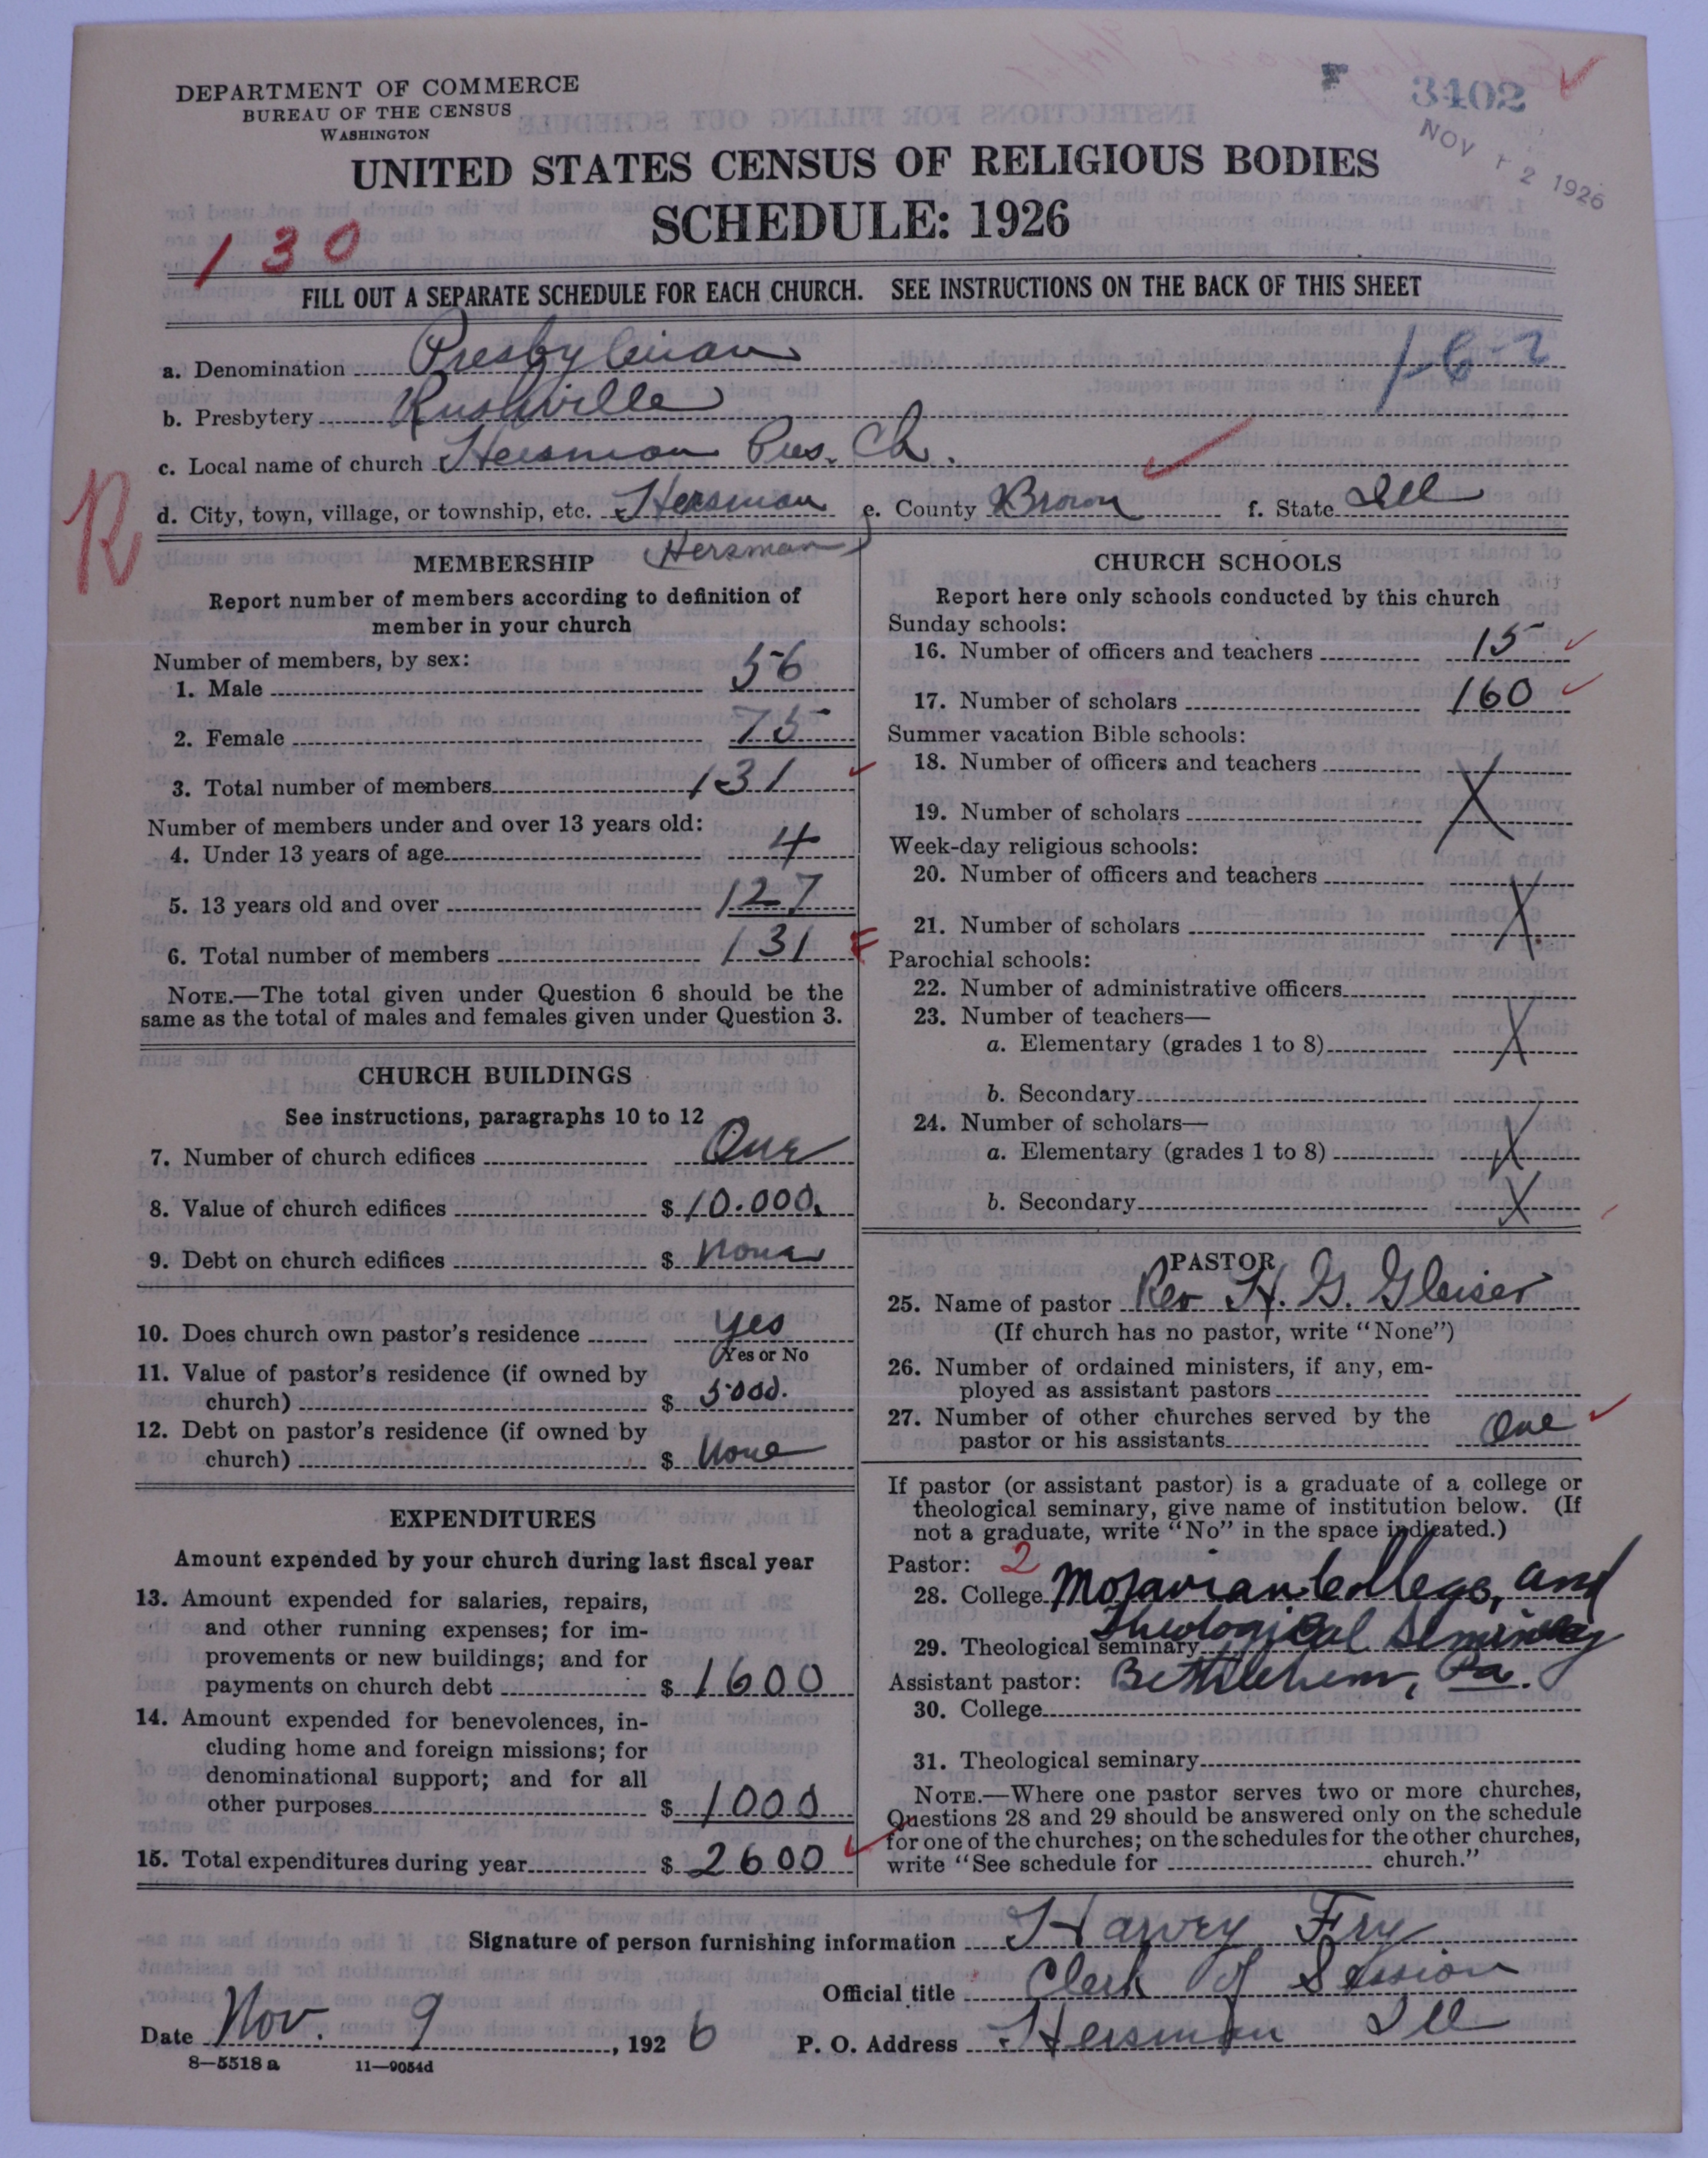 DEPARTMENT OF COMMERCE
BUREAU OF THE CENSUS
WASHINGTON
3402
NOV 12 1926
UNITED STATES CENSUS OF RELIGIOUS BODIES
SCHEDULE: 1926
130
FILL OUT A SEPARATE SCHEDULE FOR EACH CHURCH. SEE INSTRUCTIONS ON THE BACK OF THIS SHEET
a. Denomination Presbyterian 1-6-2
b. Presbytery Rushville
c. Local name of church Hersman Pres. Ch.
d. City, town, village, or township, etc. Hersman e. County Brown f. State Ill
R
Hersman
MEMBERSHIP
Report number of members according to definition of
member in your church
Number of members, by sex:
1. Male 56
2. Female 75
3. Total number of members 131
Number of members under and over 13 years old:
4. Under 13 years of age 4
5. 13 years old and over 127
6. Total number of members 131
NOTE.—The total given under Question 6 should be the
same as the total of males and females given under Question 3.
CHURCH BUILDINGS
See instructions, paragraphs 10 to 12
7. Number of church edifices One
8. Value of church edifices $ 10.000.
9. Debt on church edifices $ None
10. Does church own pastor's residence Yes
Yes or No
11. Value of pastor's residence (if owned by
church) $ 5000.
12. Debt on pastor's residence (if owned by
church) $ None
EXPENDITURES
Amount expended by your church during last fiscal year
13. Amount expended for salaries, repairs,
and other running expenses; for im-
provements or new buildings; and for
payments on church debt $ 1600
14. Amount expended for benevolences, in-
cluding home and foreign missions; for
denominational support; and for all
other purposes $ 1000
15. Total expenditures during year $ 2600
CHURCH SCHOOLS
Report here only schools conducted by this church
Sunday schools:
16. Number of officers and teachers 15
17. Number of scholars 160
Summer vacation Bible schools:
18. Number of officers and teachers
19. Number of scholars X
Week-day religious schools:
20. Number of officers and teachers
21. Number of scholars X
Parochial schools:
22. Number of administrative officers
23. Number of teachers—
a. Elementary (grades 1 to 8) X
b. Secondary
24. Number of scholars—
a. Elementary (grades 1 to 8) X
b. Secondary X
PASTOR
25. Name of pastor Rev H. G. Gleiser
(If church has no pastor, write "None")
26. Number of ordained ministers, if any, em-
ployed as assistant pastors
27. Number of other churches served by the
pastor or his assistants One
If pastor (or assistant pastor) is a graduate of a college or
theological seminary, give name of institution below. (If
not a graduate, write "No" in the space indicated.)
Pastor: 2
28. College Moravian College, and
29. Theological seminary Theological Seminary
Assistant pastor: Bethlehem, Pa.
30. College
31. Theological seminary
NOTE.—Where one pastor serves two or more churches,
Questions 28 and 29 should be answered only on the schedule
for one of the churches; on the schedules for the other churches,
write "See schedule for church."
Signature of person furnishing information Harvey Fry
Official title Clerk of Session
Date Nov. 9, 1926 P. O. Address Hersman Ill
8—5518 a 11—9054d